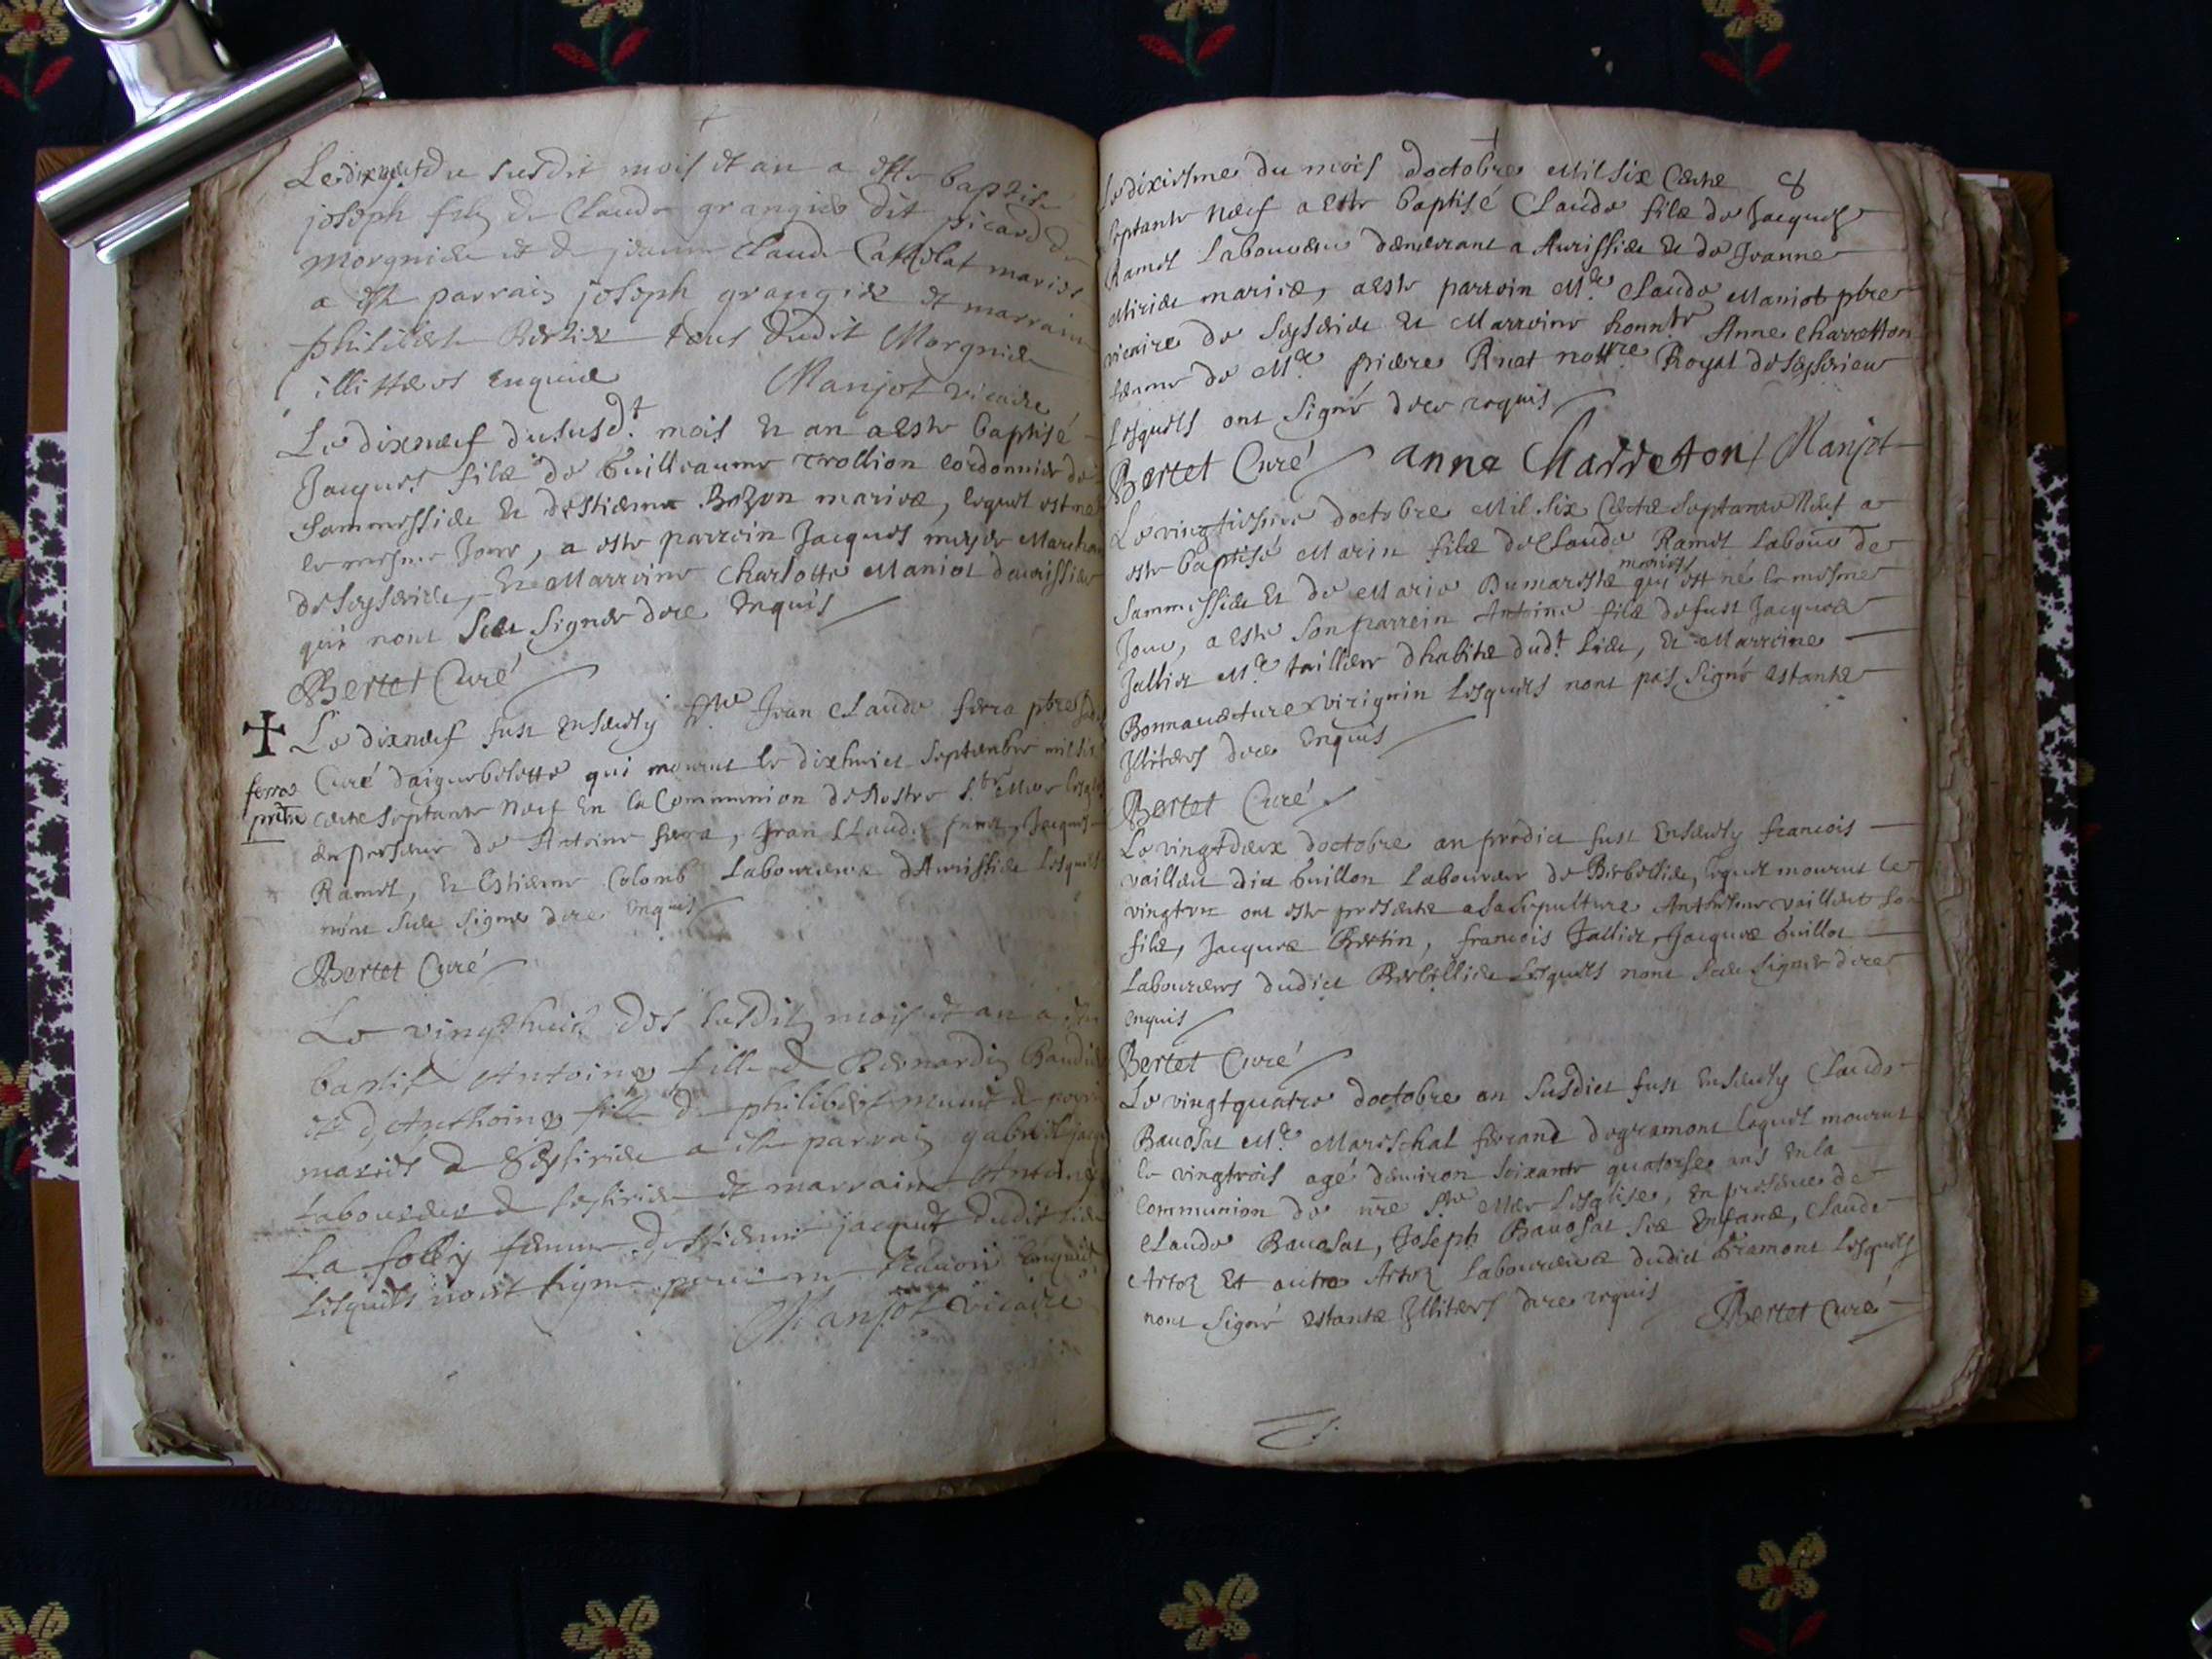 Le dixneuf du susdit mois et an a este baptisé
joseph filz de Claude grangier dit picard de
morgnieu et de jeanne Claude mariés
a esté parrain joseph grangier et marraine
philiberte Bertier tous dudit Morgnieu
illitters enquis Manjot vicaire
Le dixneuf dususd.t mois et an a esté baptisé
Jacques filz de Guilleaume Trollion cordonnier de
Sammessieu et destienne Bozon mariez, lequel est né
le mesme Jour, a esté parrein Jacques Marchan
de seysserieu, et Marreine Charlotte Maniot daurissieu
qui nont sceu signer de ce enquis
Bertet Curé
Le dixneuf fust ensevely M.re Jean Claude ferra pbre
ferra Curé daiguebelette qui mourut le dixhuict septembre mil six
pretre cents septante neuf en la Communion de Nostre S.te Mere
en presence de Antoine ferra, Jean Claude Jacques
Ramel, et Estienne Colomb Laboureurs dAurissieu lesquels
nont sceu signer de ce enquis
Bertet Curé
Le vingthuit des susdits mois et an a esté
baptisé Antoine fille de Bernardin
et d Anthoine fille de philibert
mariés de seyssirieu a este parrain gabriel
Laboureur de seyssirieu et marraine Antoine
La folliy femme destienne jacquet dudit lieu
Lesquels nont signé pour ne scavoir enquis
Manjot vicaire
8
Le dixiesme du mois doctobre Mil six Cents
septante Neuf a esté baptisé Claude filz de Jacques
Ramel Laboureur demeurant a Aurissieu et de Jeanne
Mirieu mariez, a esté parrein M.re Claude Maniot pbre
vicaire de seysserieu et Marreine honn.te Anne Charretton
femme de M.e Pierre Ruat nott.re Royal de seysserieu
Lesquels ont signé de ce requis
Bertet Curé anne Charreton Manjot
Le vingtiesme doctobre Mil six Cents septante Neuf a
esté baptisé Marin filz de Claude Ramel Labour de
Sammessieu et de Marie Dumarest mariés qui est né le mesme
Jour, a esté son parrein Antoine filz defust Jacques
Jallier M.e tailleur dhabitz dud.t lieu, et Marreine
Bonnaventure virignin Lesquels nont pas signé estantz
Illiters de ce enquis
Bertet Curé
Le vingtdeux doctobre an predict fust ensevely francois
vaillent dit Guillon Laboureur de Berbellieu, lequel mourut le
vingtun ont esté presentz a sa sepulture Anthelme vaillent son
filz, Jacques Bertin, francois Jallier, Jacques Guillot
Laboureurs dudict Berbillieu Lesquels nont sceu signer de ce
enquis
Bertet Curé
Le vingtquatre doctobre an susdict fust ensevely Claude
Bavosat M.e Mareschal ferrand de gramont lequel mourut
le vingtrois agé denviron soixante quatorse ans en la
Communion de nre S.te Mere Lesglise, en presence de
Claude Bavosat, Joseph Bavosat ses enfans, Claude
Artoz et autre Artoz Laboureurs dudict Gramont Lesquels
nont signé estantz Illiters de ce requis Bertet Curé